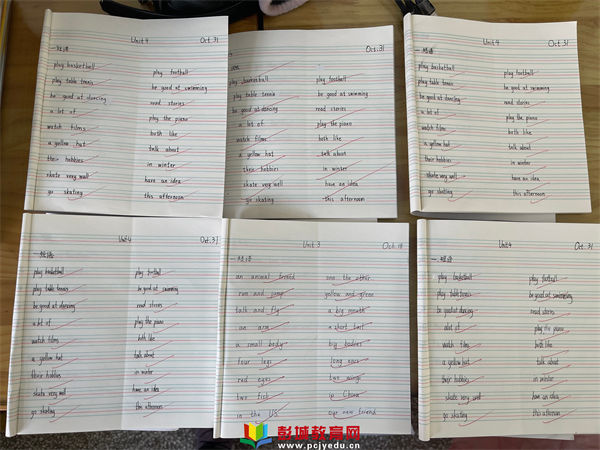 Unit 4 Oct. 31
play basketball play football
play table tennis be good at swimming
be good at dancing read stories
a lot of play the piano
watch films both like
a yellow hat talk about
their hobbies in winter
skate very well have an idea
go skating this afternoon
Oct. 31
play basketball play football
play table tennis be good at swimming
be good at dancing read stories
a lot of play the piano
watch films both like
a yellow hat talk about
their hobbies in winter
skate very well have an idea
go skating this afternoon
Unit 4 Oct. 31
play basketball play football
play table tennis be good at swimming
be good at dancing read stories
a lot of play the piano
watch films both like
a yellow hat talk about
their hobbies in winter
skate very well have an idea
go skating this afternoon
Unit 4 Oct. 31
play basketball play football
play table tennis be good at swimming
be good at dancing read stories
a lot of play the piano
watch films both like
a yellow hat talk about
their hobbies in winter
skate very well have an idea
go skating this afternoon
Unit 3 Oct. 18
an animal one the other
run and jump yellow and green
talk and fly a big mouth
an arm a short
a small body big bodies
four legs long ears
red eyes two wings
two fish in China
in the US new friend
Unit 4 Oct. 31
play basketball play football
play table tennis be good at swimming
be good at dancing read stories
a lot of play the piano
watch films both like
a yellow hat talk about
their hobbies in winter
skate very well have an idea
go skating this afternoon
彭城教育网
www.pcjyedu.cn